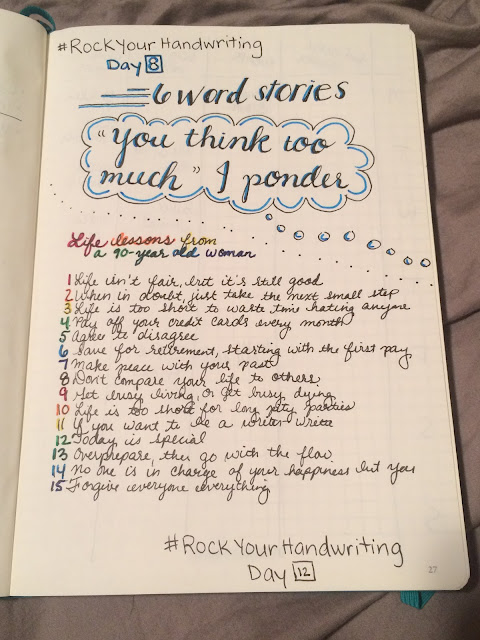 #RockYourHandwriting
Day 8
6 word stories
"You think too
much" I ponder
Life lessons from
a 90-year old woman
1 Life isn't fair, but it's still good
2 When in doubt, just take the next small step
3 Life is too short to waste time hating anyone
4 Pay off your credit cards every month
5 Agree to disagree
6 Save for retirement, starting with the first pay
7 Make peace with your past
8 Don't compare your life to others
9 Get busy living, or get busy dying
10 Life is too short for long pity parties
11 If you want to be a writer write
12 Today is special
13 Overprepare, then go with the flow
14 No one is in charge of your happiness but you
15 Forgive everyone everything
#RockYourHandwriting
Day 12
27